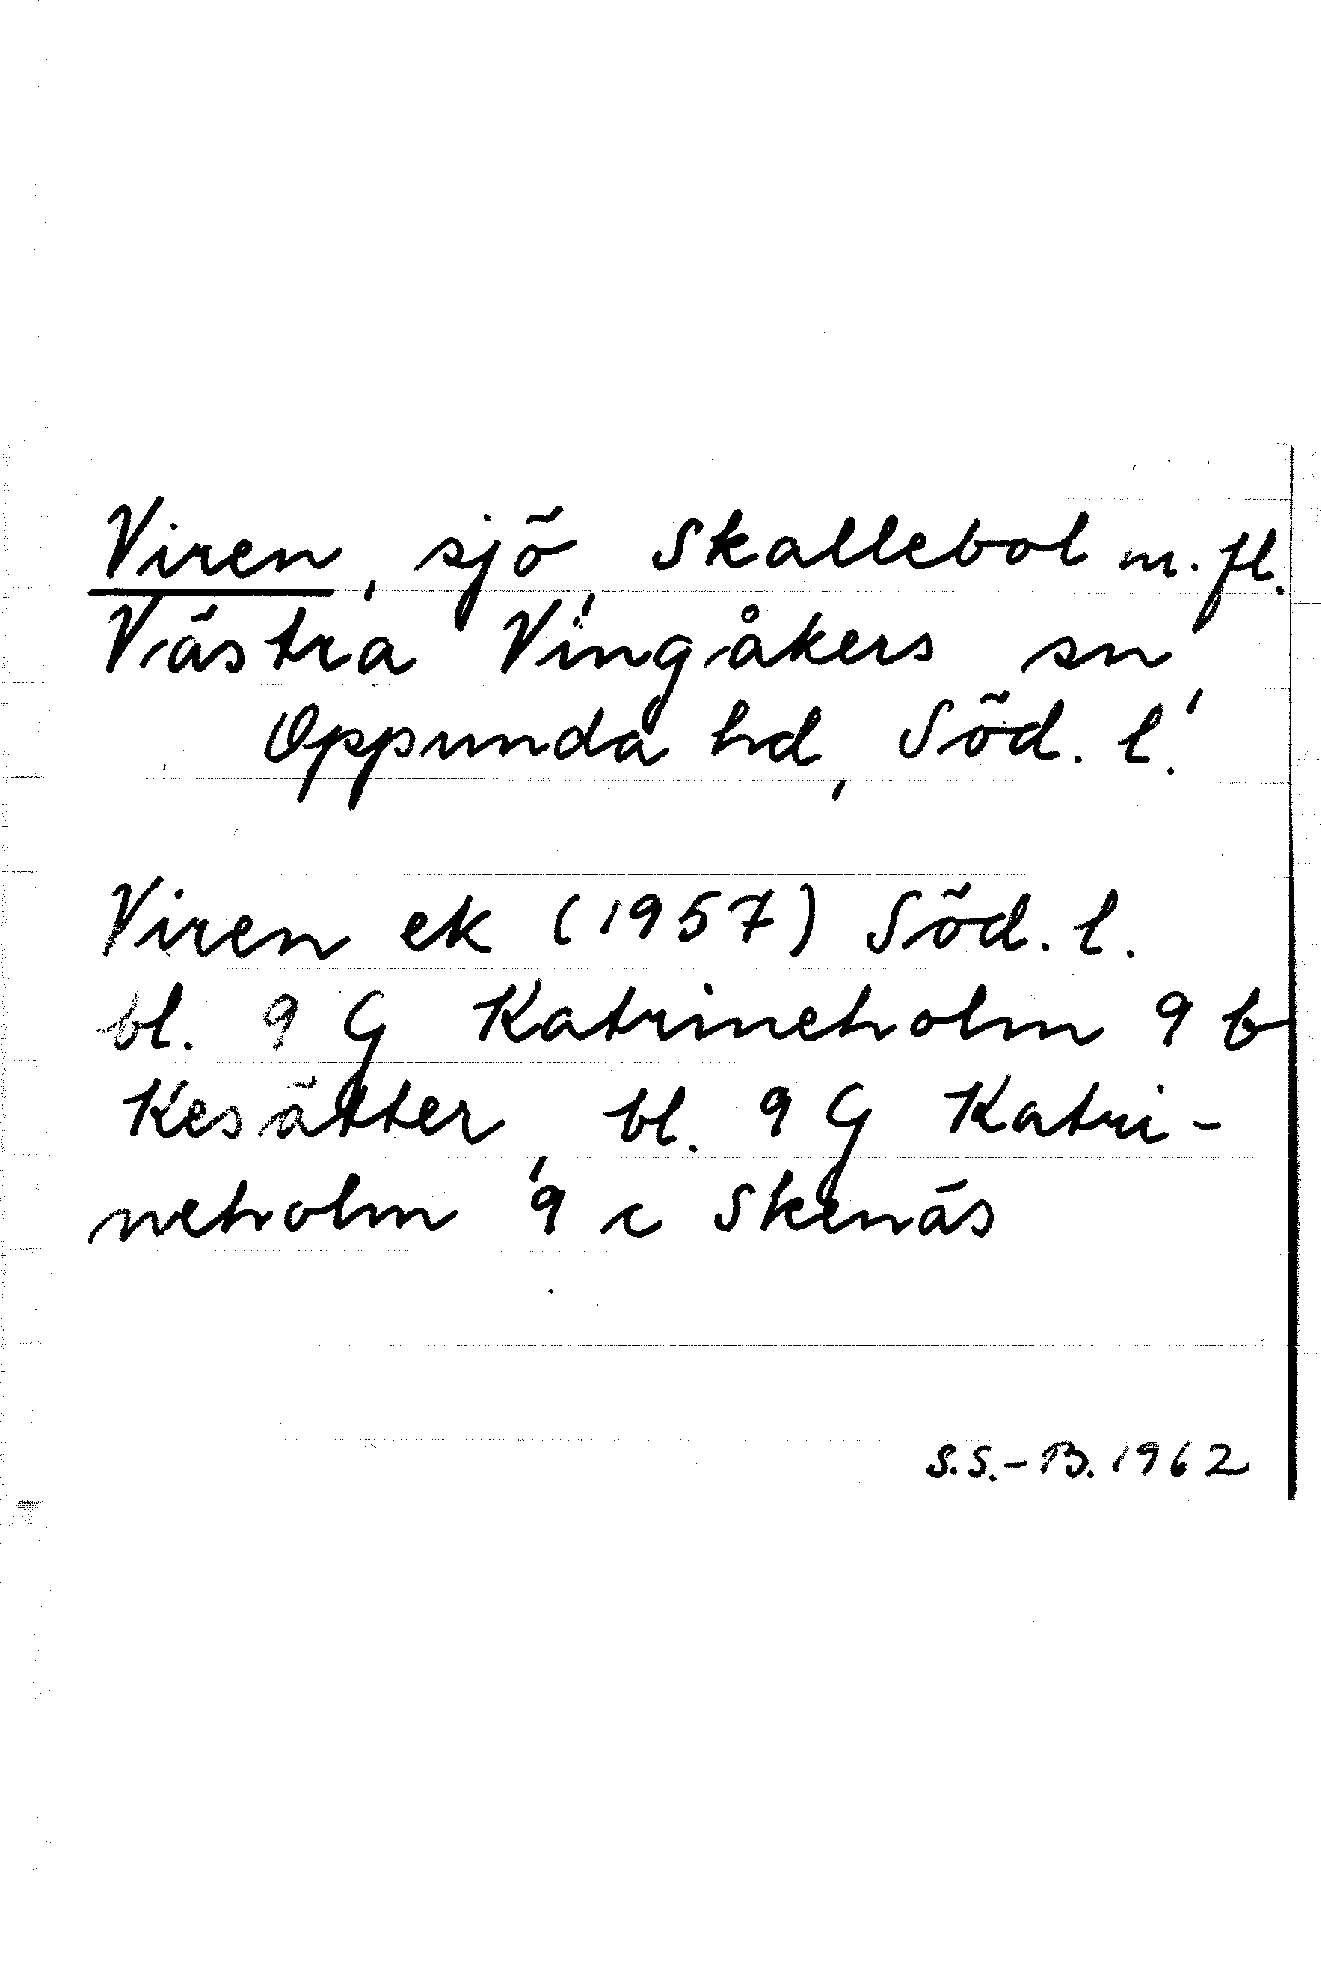 Viren, sjö, Skallebol m. fl.
Västra Vingåkers sn,
Oppunda hd, Söd. l.
Viren ek (1957) Söd. l.
bl. 9 G Katrineholm 9 b
Kesätter, bl. 9 G Katri-
neholm 9 c Skenäs
S.S.-B. 1962